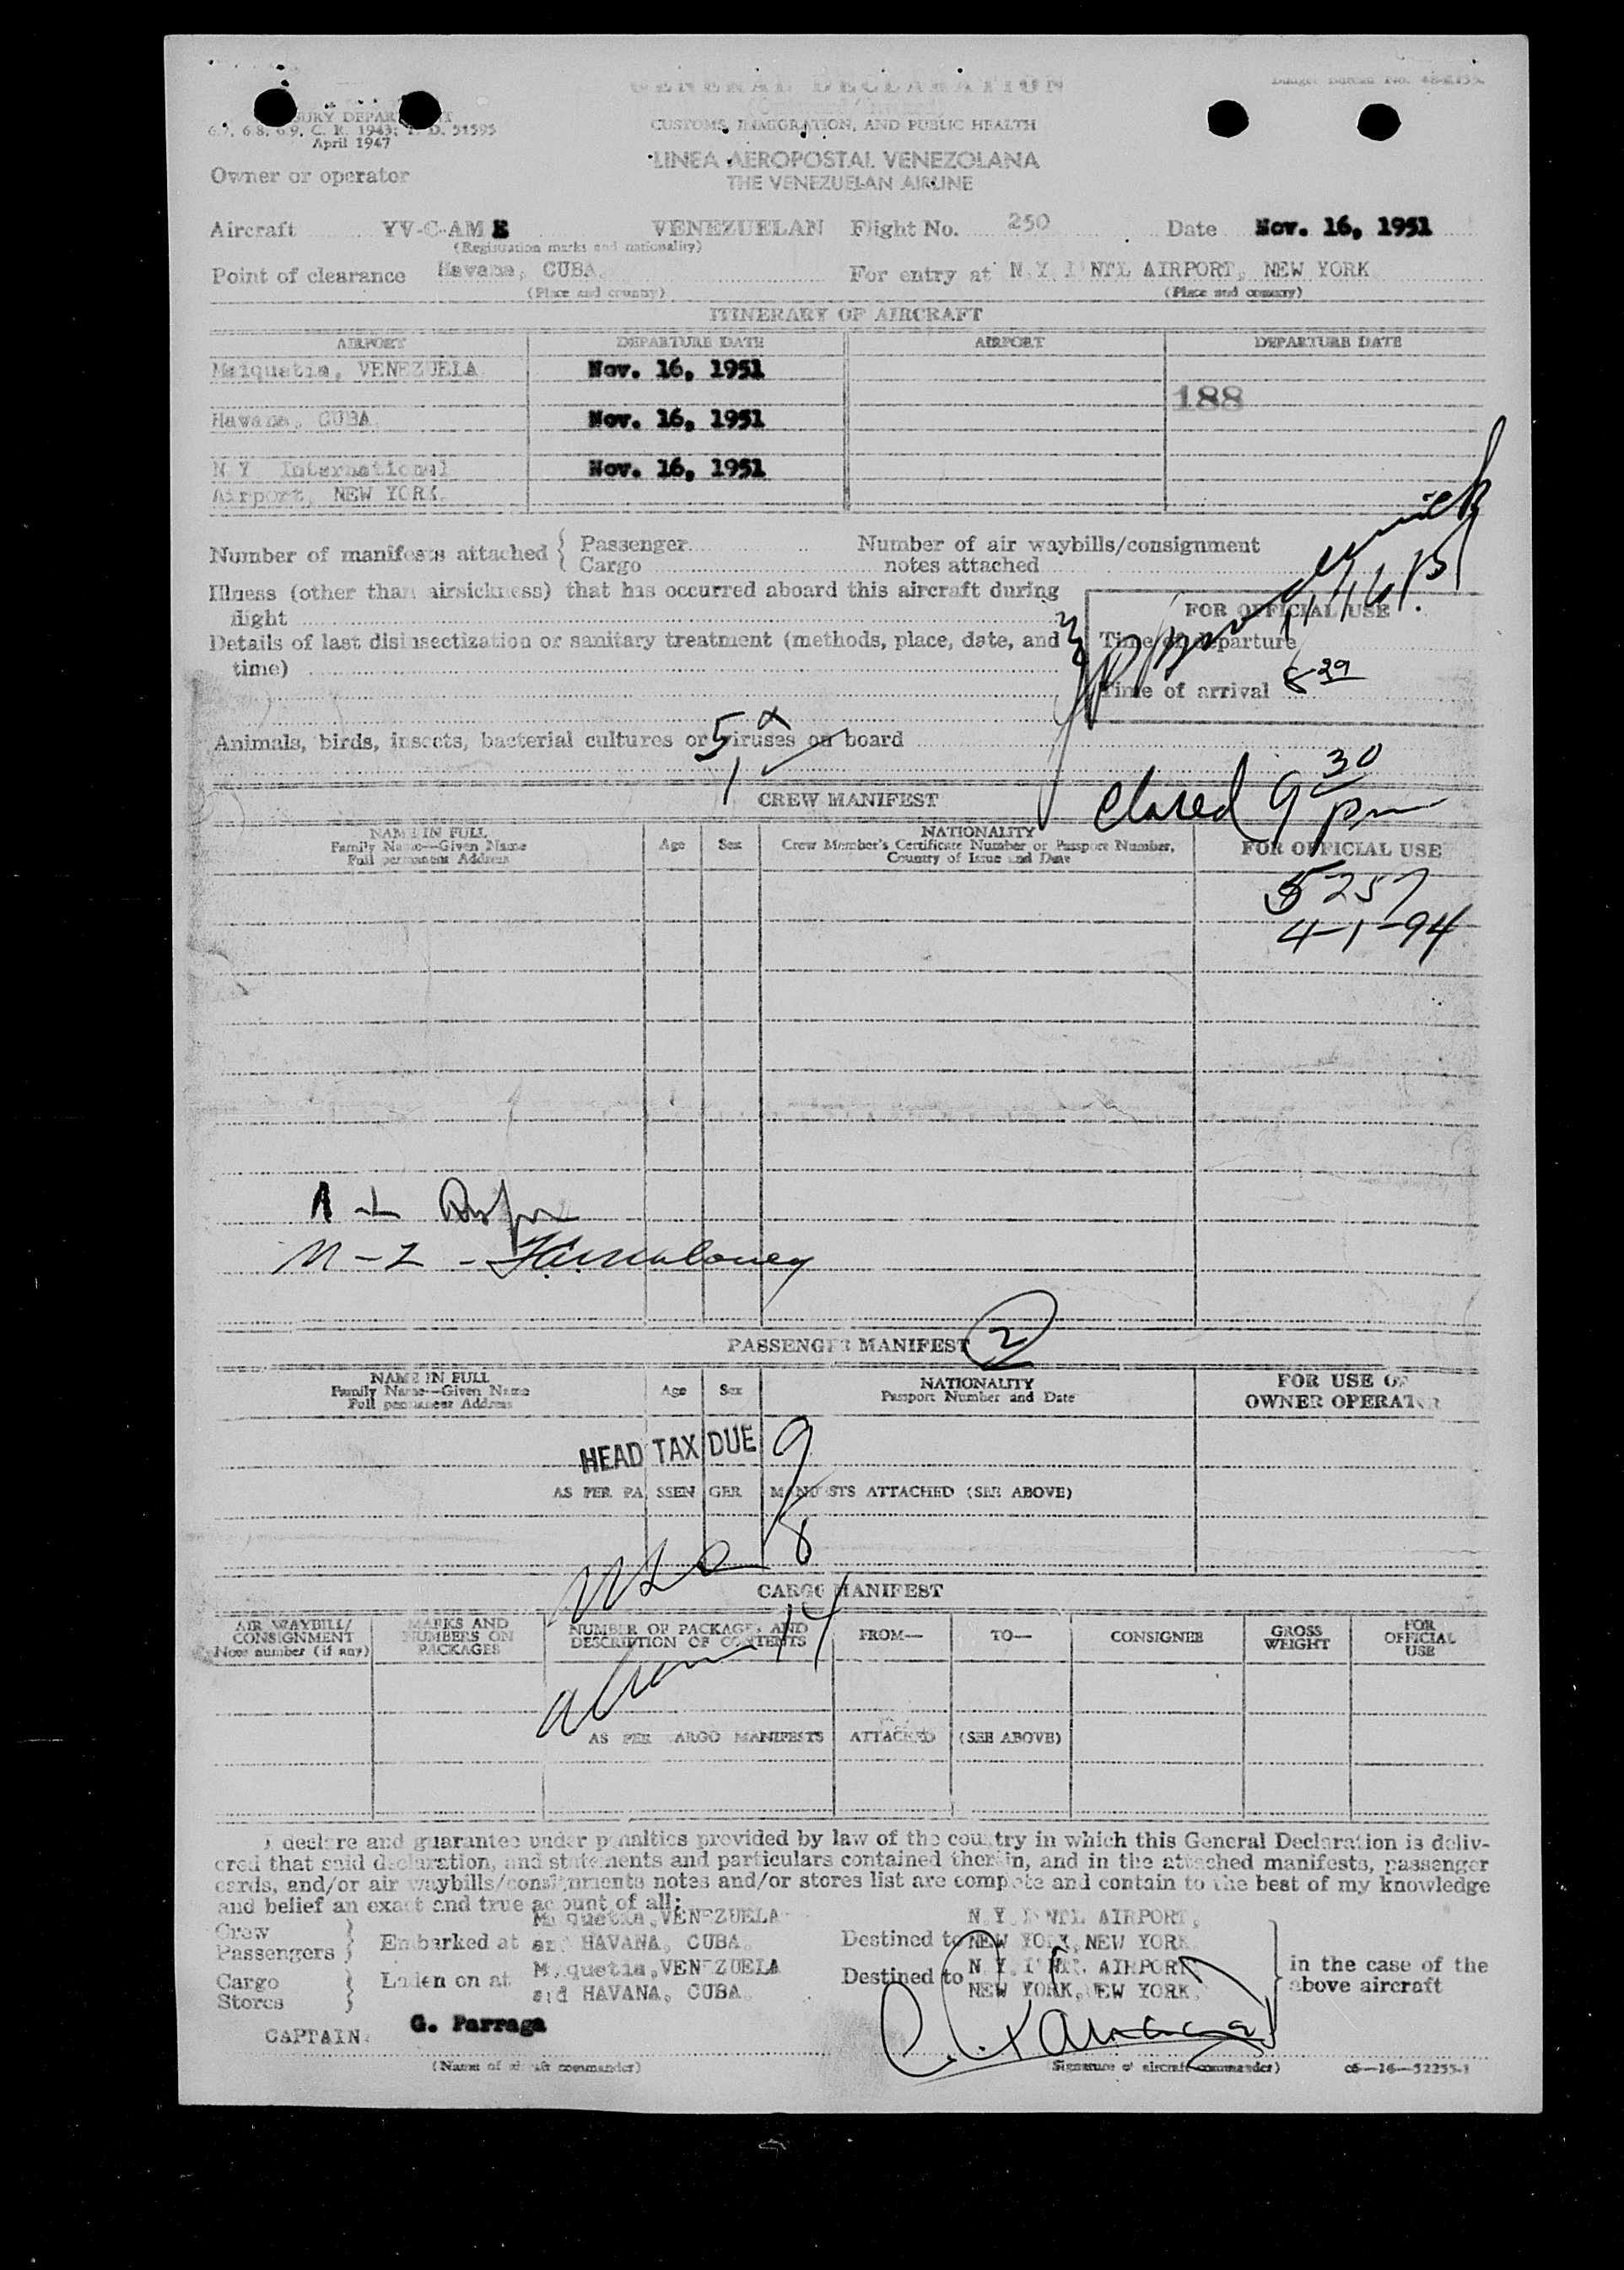 GENERAL DECLARATION
(Outward/Inward)
Budget Bureau No.
6.7, 6.8, 6.9, C. R. 1943; T. D. 51595
April 1947
CUSTOMS, IMMIGRATION, AND PUBLIC HEALTH
LINEA AEROPOSTAL VENEZOLANA
THE VENEZUELAN AIRLINE
Owner or operator
Aircraft YV-C-AM E VENEZUELAN Flight No. 250 Date Nov. 16, 1951
(Registration marks and nationality)
Point of clearance Havana, CUBA. For entry at N.Y. I'NT'L AIRPORT, NEW YORK
(Place and country) (Place and country)
ITINERARY OF AIRCRAFT
AIRPORT DEPARTURE DATE AIRPORT DEPARTURE DATE
Maiquetia, VENEZUELA Nov. 16, 1951
188
Havana, CUBA Nov. 16, 1951
N Y International Nov. 16, 1951
Airport, NEW YORK.
Number of manifests attached { Passenger Number of air waybills/consignment
Cargo notes attached
Illness (other than airsickness) that has occurred aboard this aircraft during
flight
FOR OFFICIAL USE
Details of last disinsectization or sanitary treatment (methods, place, date, and
time)
Time of departure
Time of arrival 8 29
Animals, birds, insects, bacterial cultures or viruses on board
5 x
1
Closed 9 30 pm
CREW MANIFEST
NAME IN FULL Age Sex NATIONALITY FOR OFFICIAL USE
Family Name—Given Name Crew Member's Certificate Number or Passport Number,
Full permanent Address Country of Issue and Date
5257
4-1-94
PASSENGER MANIFEST 2
NAME IN FULL Age Sex NATIONALITY FOR USE OF
Family Name—Given Name Passport Number and Date OWNER OPERATOR
Full permanent Address
HEAD TAX DUE 9
AS PER PASSENGER MANIFESTS ATTACHED (SEE ABOVE)
USC 8
CARGO MANIFEST
Alien 14
AIR WAYBILL/ MARKS AND NUMBER OF PACKAGES AND FROM— TO— CONSIGNEE GROSS FOR
CONSIGNMENT NUMBERS ON DESCRIPTION OF CONTENTS WEIGHT OFFICIAL
Note number (if any) PACKAGES USE
AS PER CARGO MANIFESTS ATTACHED (SEE ABOVE)
I declare and guarantee under penalties provided by law of the country in which this General Declaration is deliv-
ered that said declaration, and statements and particulars contained therein, and in the attached manifests, passenger
cards, and/or air waybills/consignments notes and/or stores list are complete and contain to the best of my knowledge
and belief an exact and true account of all:
Crew Maiquetia, VENEZUELA N.Y. I'NT'L AIRPORT,
Passengers } Embarked at and HAVANA, CUBA. Destined to NEW YORK, NEW YORK
Cargo Maiquetia, VENEZUELA Destined to N.Y. I'NT'L AIRPORT
Stores } Laden on at and HAVANA, CUBA. NEW YORK, NEW YORK.
} in the case of the
above aircraft
CAPTAIN: G. Parraga
(Name of aircraft commander) (Signature of aircraft commander) c6—16—52255-1